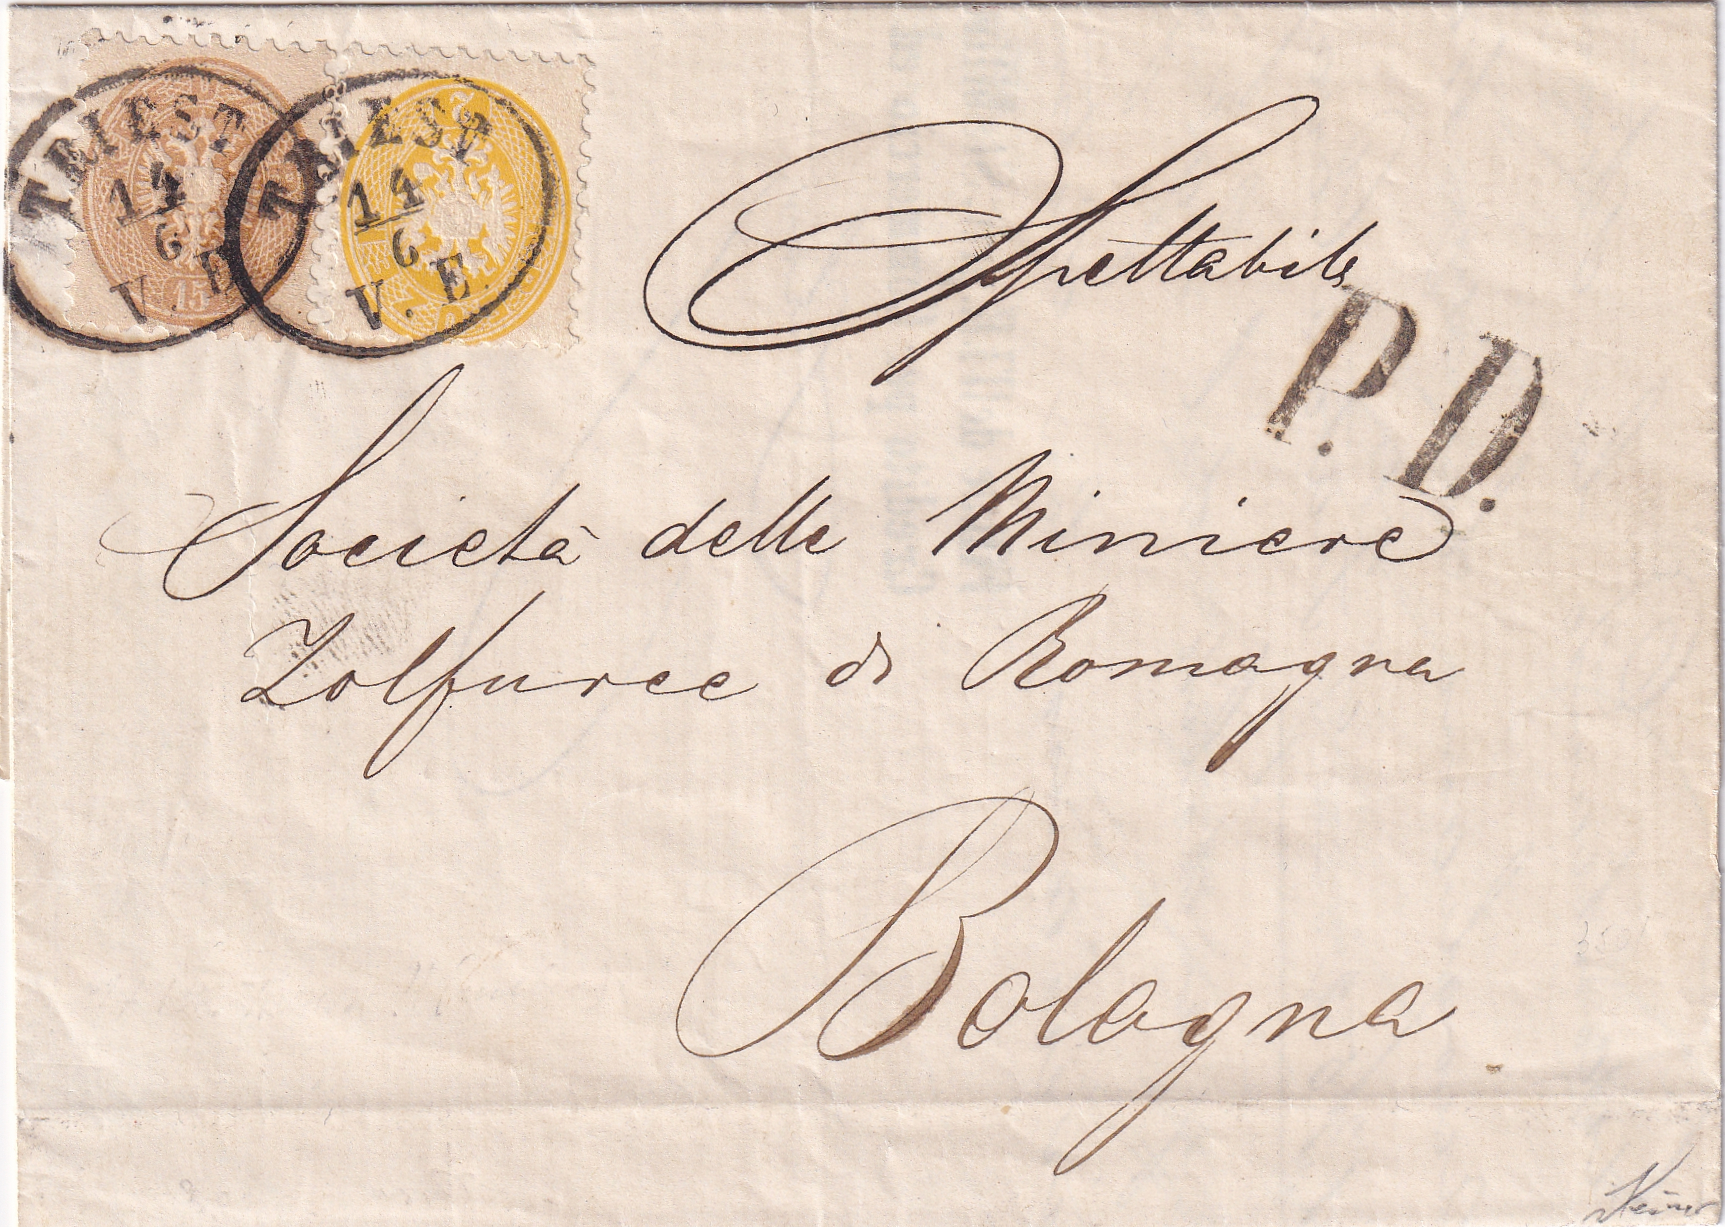 TRIEST
14
6
V. E.
15
TRIEST
14
6
V. E.
2
Spettabile
P. D.
Società delle Miniere
Zolfuree di Romagna
Bologna